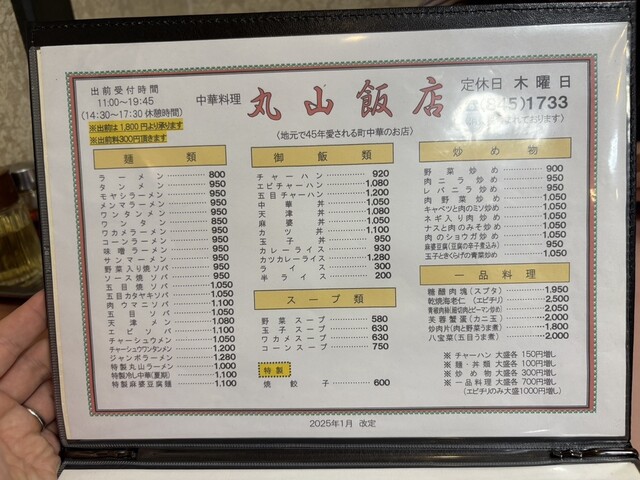 出前受付時間
11:00～19:45
(14:30～17:30 休憩時間)
※出前は1,800円より承ります
※出前料300円頂きます
中華料理 丸山飯店
〈地元で45年愛される町中華のお店〉
定休日 木曜日
(845)1733
麺類
ラーメン 800
タンメン 950
モヤシラーメン 950
メンマラーメン 950
ワンタンメン 950
ワンタン 850
ワカメラーメン 950
コーンラーメン 950
味噌ラーメン 950
サンマーメン 950
野菜入り焼ソバ 950
ソース焼ソバ 950
五目焼ソバ 1.050
五目カタヤキソバ 1.050
肉ウマニソバ 1.100
五目ソバ 1.050
天津メン 1.080
エビソバ 1.100
チャーシュウメン 1.050
チャーシュウワンタンメン 1.200
ジャンボラーメン 1.280
特製丸山ラーメン 1.000
特製冷し中華(夏期) 1.100
特製麻婆豆腐麺 1.100
御飯類
チャーハン 920
エビチャーハン 1.080
五目チャーハン 1.200
中華丼 1.050
天津丼 1.080
麻婆丼 1.050
カツ丼 1.100
玉子丼 950
カレーライス 930
カツカレーライス 1.280
ライス 300
半ライス 200
スープ類
野菜スープ 580
玉子スープ 630
ワカメスープ 630
コーンスープ 750
特製
焼餃子 600
炒め物
野菜炒め 900
肉ニラ炒め 950
レバニラ炒め 950
肉野菜炒め 1.050
キャベツと肉のミソ炒め 1.050
ネギ入り肉炒め 1.050
ナスと肉のみそ炒め 1.050
肉のショウガ炒め 1.050
麻婆豆腐(豆腐の辛子煮込み) 950
玉子ときくらげの青菜炒め 1.050
一品料理
糖醋肉塊(スブタ) 1.950
乾焼海老仁(エビチリ) 2.500
青椒肉絲(細切肉とピーマン炒め) 2.050
芙蓉蟹蛋(カニ玉) 2.000
炒肉片(肉と野菜うま煮) 1.800
八宝菜(五目うま煮) 2.000
※チャーハン 大盛各 150円増し
※麺・丼類 大盛各 100円増し
※炒め物 大盛各 300円増し
※一品料理 大盛各 700円増し
(エビチリのみ大盛1000円増し)
2025年1月 改定